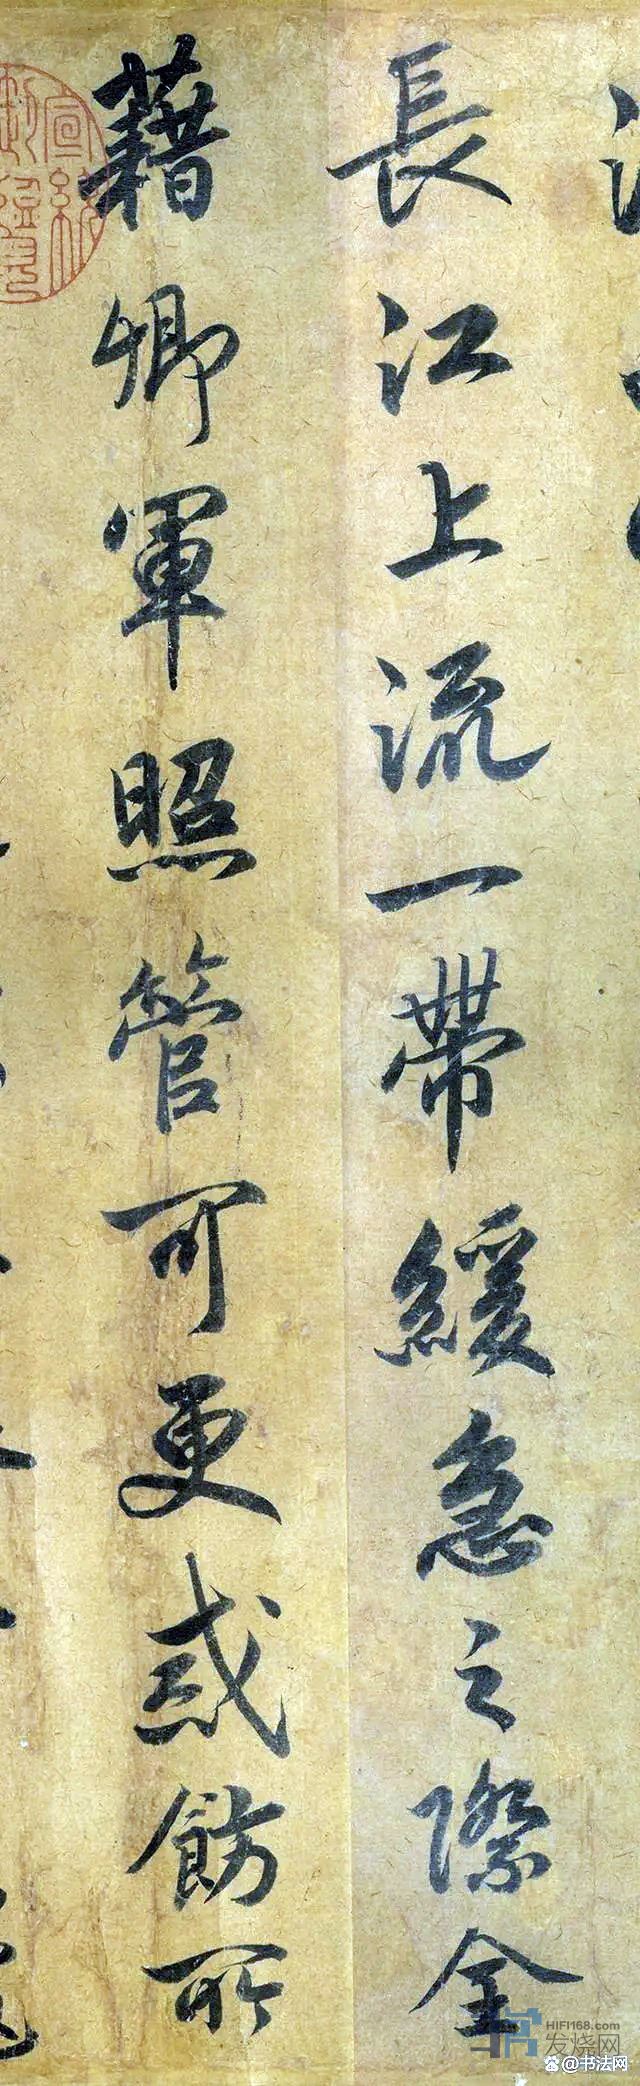 長江上流一帶緩急之際全
藉卿軍照管可更戒飭所
HIFI168.com
发烧网
@书法网